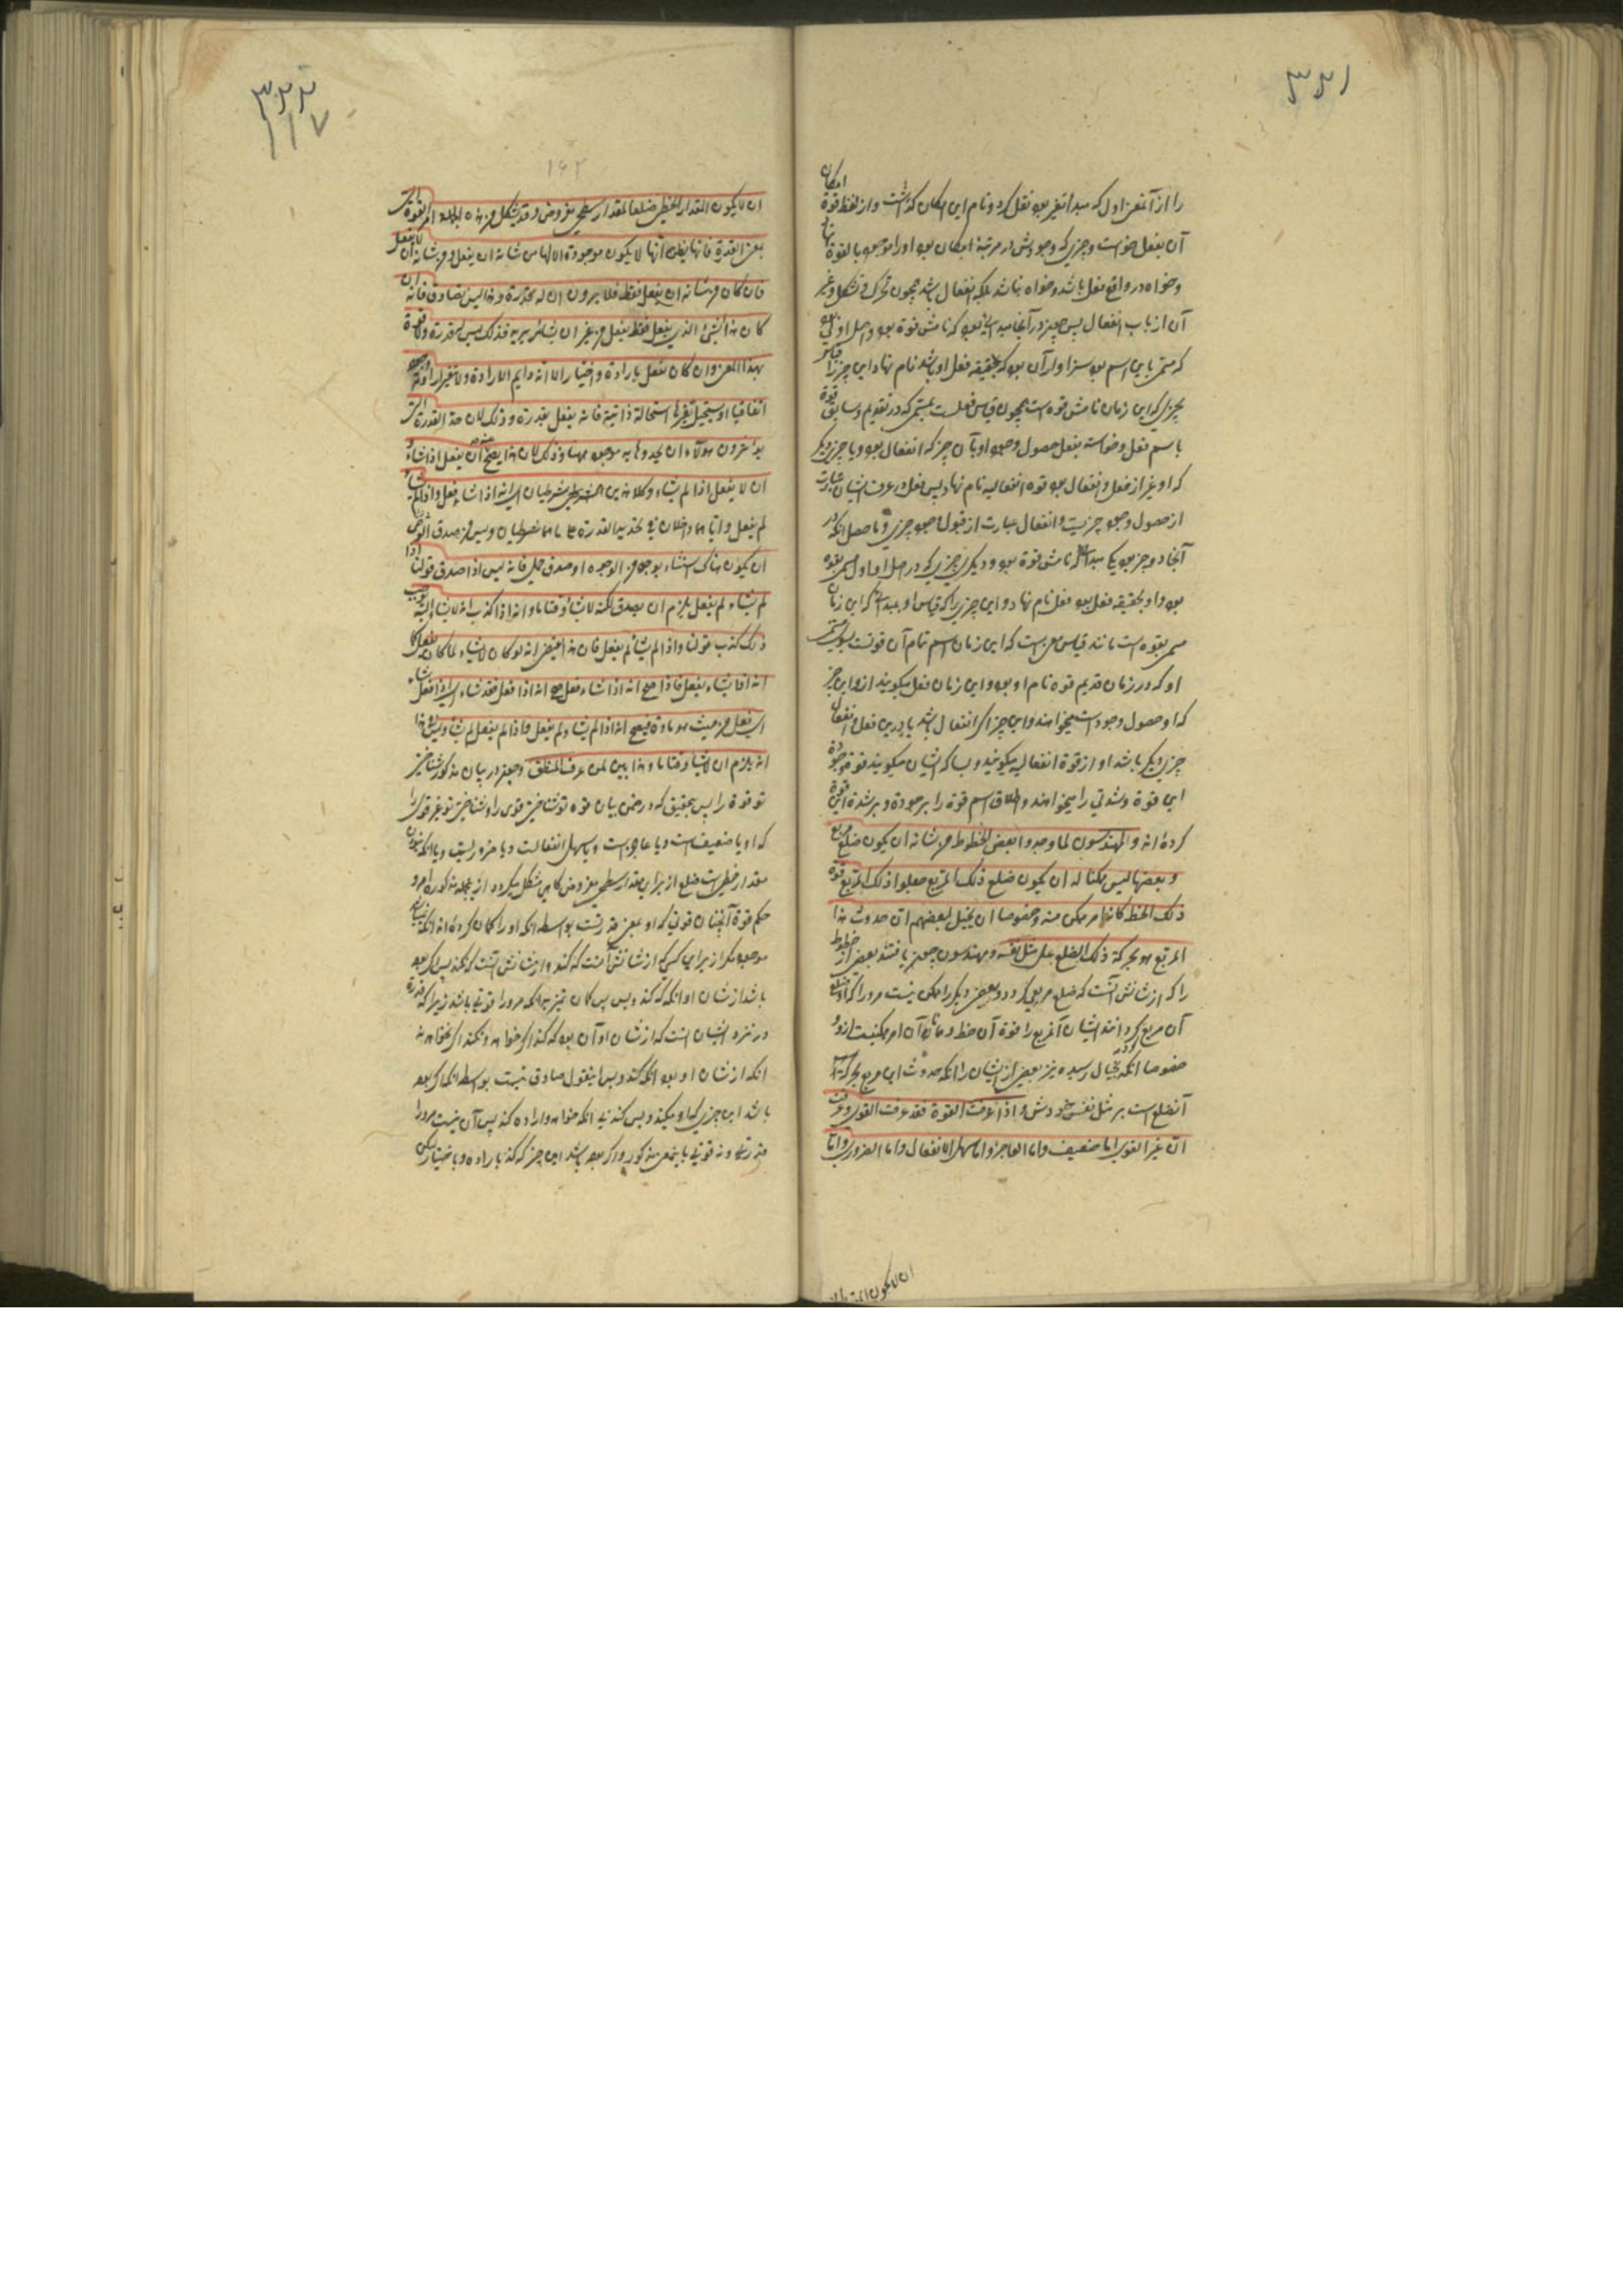 ۳۳۱
امکان
را از آنمعنی اول که مبدا تغیر بود نقل کرد و نام این امکان گذاشت و از لفظ قوة
آن بفعل خواست و چیزی که وجودش در مرتبهٔ امکان بود او را موجود بالقوة
و خواه در واقع فعل باشد و خواه نباشد بلکه انفعال باشد همچون تحرک و تشکل و غیر
آن از باب انفعال پس چون در آنجا مبدائی بود که نامش قوة بود و اصل اولی
که مسمی باین اسم بود سزاوار آن بود که بحقیقه فعل او باشد نام نهاد این چیز را
بچیزی که این زمان نامش قوه است همچون قیاس فعلست بمسمی که در تقدیم و سابق
باسم فعل و خواسته بفعل حصول وجود او با آن چیز که انفعال بود و یا چیز دیگر
که او غیر از فعل و انفعال بود قوه انفعالیه نام نهاد پس فعل در عرف ایشان عبارت
از حصول وجود چیزیست و انفعال عبارت از قبول وجود چیزی و ما حصل آنکه در
آنجا دو چیز بود یکی مبدائی که نامش قوة بود و دیگری چیزی که در اصل اول مسمی بقوه
بود و او بحقیقه فعل بود فعل نام نهاد و این چیزی را که قیاس او بمبدائی که این زمان
مسمی بقوه است مانند قیاس مسمی است که این زمان اسم تمام آن قوتست بسوی مسمی
او که در زمان قدیم قوه نام او بود و این زمان فعل میگویند ازو این چیز
که او حصول وجود است میخواهند و این چیز اگر انفعال باشد یا درین فعل و انفعال
چیزی دیگر باشد او از قوة انفعالیه میگویند و بسا که ایشان میگویند قوة و جودة
این قوة و شدتی را میخواهند و اطلاق اسم قوة را بر جودة و بر شدة این قوة
کرده‌اند والمهندسون لما وجدوا بعض الخطوط من شانه ان یکون ضلع مربع
و بعضها لیس ممکنا له ان یکون ضلع ذلک المربع جعلوا ذلک المربع قوة
ذلک الخط کانها امر ممکن منه و خصوصا ان یخیل لبعضهم ان حدوث هذا
المربع هو بحرکة ذلک الضلع علی مثل نفسه و مهندسون چون یافتند بعض از خطوط
را که از شانش آنست که ضلع مربعی گردد و بعضی دیگر را ممکن نیست مر او را که او ضلع
آن مربع گردانند ایشان آنمربع را قوة آن خط و مانند آن امر ممکنیست ازو
خصوصا آنکه بخیال رسیده نیز بعضی از ایشان را آنکه حدوث این مربع بحرکت
آنضلع است بر مثل نفس خودش و اذا عرفت القوة فقد عرفت القوی و عرفت
ان غیر القوی اما ضعیف و اما العاجز و اما سهل الانفعال و اما الضروری و اما
ان لا یکون المقدار
۳۳۲
۱۱۷
۱۶۲
ان لا یکون المقدار الخطی ضلعا لمقدار سطحی مفروض و قد یشکل من هذه الجملة امر القوة التی
بمعنی القدرة فانها یظن انها لا یکون موجودة الا لما من شانه ان یفعل و من شانه ان لا یفعل
فان کان من شانه ان یفعل فقط فلا یرون ان له قدرة و هذا لیس بصادق فانه ان
کان هذا الشیء الذی یفعل فقط یفعل من غیر ان یشاء و یرید فذلک لیس له قدرة و لا قوة
بهذا المعنی و ان کان یفعل بارادة و اختیار الا انه دایم الارادة و لا یتغیر ارادته وجودا
اتفاقیا او یستحیل تغیرها استحالة ذاتیة فانه یفعل بقدرة و ذلک لان حد القدرة التی
یؤثرون هؤلاء ان یحدوها به موجود هیهنا و ذلک لان هذا یصح عنه ان یفعل اذا شاء و
ان لا یفعل اذا لم یشاء و کلا هذین شرطیان ای انه اذا شاء فعل و اذا لم یشاء
لم یفعل و انما هما داخلان فی تحدید القدرة علی ما هما شرطیان و لیس من صدق الشرطی
ان یکون هناک استثناء بوجه من الوجوه او صدق حملی فانه لیس اذا صدق قولنا اذا
لم یشاء لم یفعل یلزم ان یصدق لکنه لا یشاء وقتا ما و انه اذا کذب انه لا یشاء البتة یوجب
ذلک کذب قولنا و اذا لم یشاء لم یفعل فان هذا یقتضی انه لو کان لا یشاء لما کان یفعل کما
انه اذا یشاء یفعل و اذا صح انه اذا شاء فعل صح انه اذا فعل فقد شاء ای اذا فعل
ای فعل من حیث هو قادر فیصح انه اذا لم یشاء لم یفعل و اذا لم یفعل لم یشاء و لیس فی هذا
انه یلزم ان لا یشاء وقتا ما و هذا بین لمن عرف المنطق و چون در بیان مذکور شناختی
تو قوة را پس بتحقیق که در ضمن بیان قوه تو شناختی قوی را و شناختی تو غیر قوی را
که او یا ضعیف است و یا عاجز است و یا سهل انفعالست و یا ضروریست و یا آنکه نبودن
مقدار خطی است ضلع از برای مقدار سطحی مفروض گاهی مشکل میگردد از جمله مذکوره امر و
حکم قوة آنچنان قوتی که او بمعنی قدرتست بواسطه آنکه او را گمان کرده‌اند آنکه نباشد
موجود مگر از برای کسی که از شانش آنست که کند و از شانش آنست که نکند پس اگر بود
باشد از شان او آنکه که کند و بس پس گمان نمی‌برند آنکه مر او را قوتی باشد زیرا که قدرة
در نزد ایشان آنست که از شان او آن بود که کند اگر خواهد و نکند اگر نخواهد
آنکه از شان او بود آنکه کند و بس اینقول صادق نیست بواسطه آنکه اگر بود
باشد این چیزی که او میکند و بس کند بی آنکه خواهد و اراده کند پس آن نیست مر او را
قدرتی و نه قوتی باینمعنی مذکور و اگر بود باشد این چیز که کند باراده و باختیار لیکن